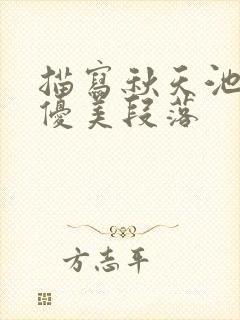 描寫秋天池
優美段落
方志平